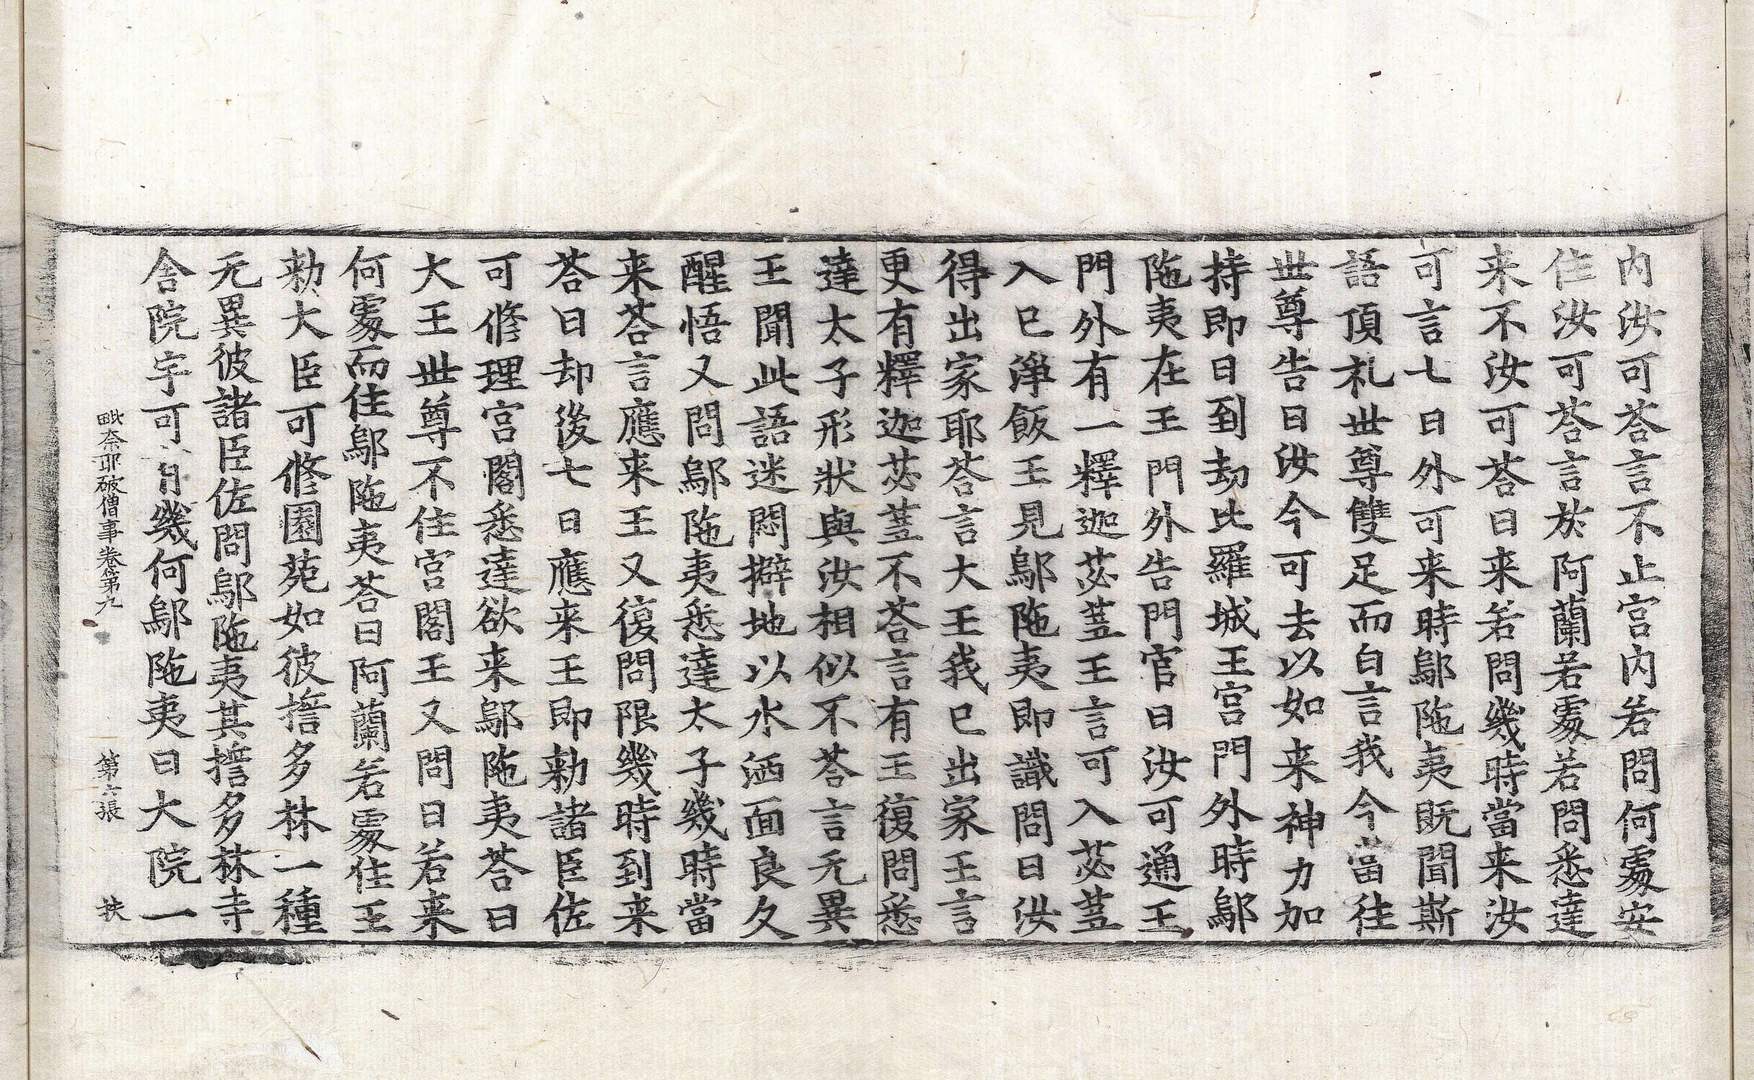 内汝可荅言不止宫内若問何䖏安
住汝可荅言於阿蘭若䖏若問悉達
来不汝可荅曰来若問幾時當来汝
可言七日外可来時鄔陁夷既聞斯
語頂礼世尊雙足而白言我今當往
世尊告曰汝今可去以如来神力加
持即日到劫比羅城王宫門外時鄔
陁夷在王門外告門官曰汝可通王
門外有一釋迦苾蒭王言可入苾蒭
入已淨飯王見鄔陁夷即識問曰汝
得出家耶荅言大王我已出家王言
更有釋迦苾蒭不荅言有王復問悉
達太子形狀與汝相似不荅言无異
王聞此語迷悶擗地以水洒面良久
醒悟又問鄔陁夷悉達太子幾時當
来荅言應来王又復問限幾時到来
荅曰却後七日應来王即勑諸臣佐
可修理宫閣悉達欲来鄔陁夷荅曰
大王世尊不住宫閣王又問曰若来
何䖏而住鄔陁夷荅曰阿蘭若䖏住王
勑大臣可修園苑如彼擔多林一種
无異彼諸臣佐問鄔陁夷其擔多林寺
舎院宇可有幾何鄔陁夷曰大院一
毗奈耶破僧事卷第九 第六張 扶